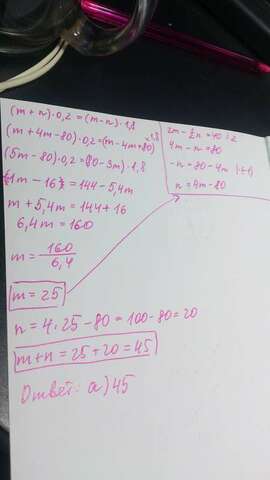 (m + n) · 0,2 = (m - n) · 1,8
(m + 4m - 80) · 0,2 = (m - 4m + 80) · 1,8
(5m - 80) · 0,2 = (80 - 3m) · 1,8
1m - 16 = 144 - 5,4m
m + 5,4m = 144 + 16
6,4m = 160
m = 160/6,4
m = 25
n = 4 · 25 - 80 = 100 - 80 = 20
m + n = 25 + 20 = 45
Ответ: а) 45
2m - 1/2n = 40 | · 2
4m - n = 80
-n = 80 - 4m | (-1)
n = 4m - 80